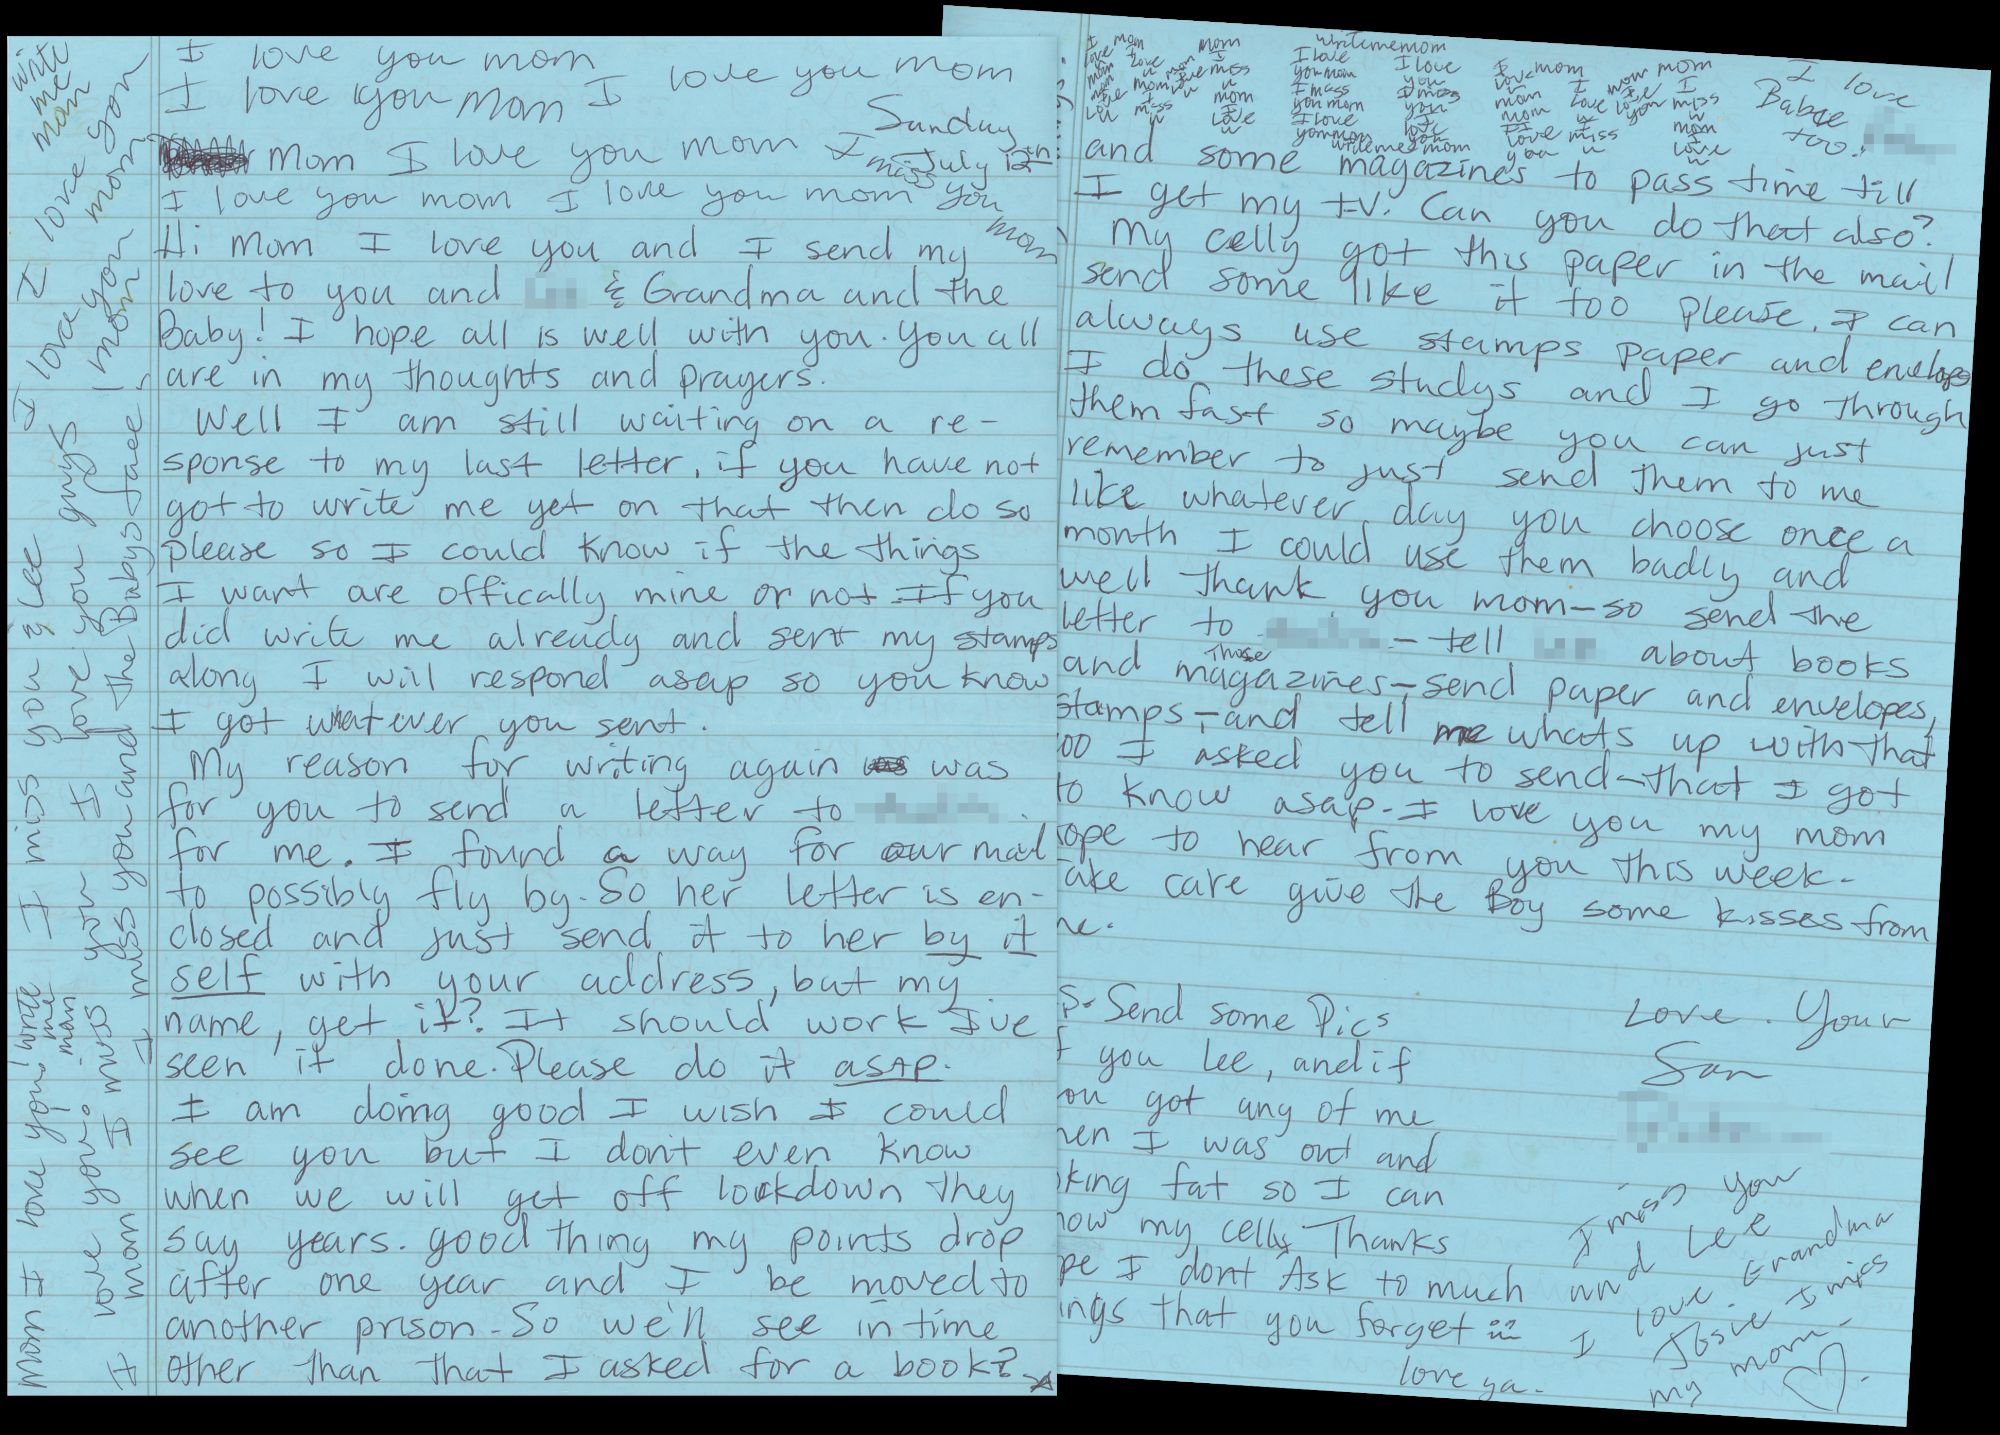 I love you mom
I love you mom I love you mom
Sunday
July 12th
Mom I love you mom I
miss
you
mom
I love you mom I love you mom
Hi Mom I love you and I send my
love to you and & Grandma and the
Baby! I hope all is well with you. You all
are in my thoughts and prayers.
Well I am still waiting on a re-
sponse to my last letter, if you have not
got to write me yet on that then do so
please so I could know if the things
I want are offically mine or not. If you
did write me already and sent my stamps
along I will respond asap so you know
I got whatever you sent.
My reason for writing again was
for you to send a letter to
for me. I found a way for our mail
to possibly fly by. So her letter is en-
closed and just send it to her by it
self with your address, but my
name, get it? It should work I've
seen it done. Please do it asap.
I am doing good I wish I could
see you but I don't even know
when we will get off lockdown they
say years. good thing my points drop
after one year and I be moved to
another prison. So we'll see in time
other than that I asked for a book?
write
me
mom
Mom I love you! I miss you & Lee I love I love you
write
me
mom
love you. I miss you I love you guys you mom
mom I miss you and the Babys face, mom
writememom
I love
you mom
I miss
you mom
I love
you mom
I love
you
I miss
you
I
love
you
writememom
I love
Babee
too!
and some magazines to pass time till
I get my t.V. Can you do that also?
My celly got this paper in the mail
send some like it too please. I can
always use stamps paper and envelops
I do these studys and I go through
them fast so maybe you can just
remember to just send them to me
like whatever day you choose once a
month I could use them badly and
well thank you mom—so send the
letter to — tell about books
and those magazines—send paper and envelopes,
stamps,—and tell me whats up with that
00 I asked you to send—that I got
to know asap. I love you my mom
ope to hear from you this week.
ake care give the Boy some kisses from
me.
Love. Your
Son
S. Send some Pics
f you Lee, and if
ou got any of me
hen I was out and
oking fat so I can
how my celly Thanks
pe I dont Ask to much
ings that you forget
love ya.
I miss you
and Lee
I love Grandma
Josie I miss
my mom.